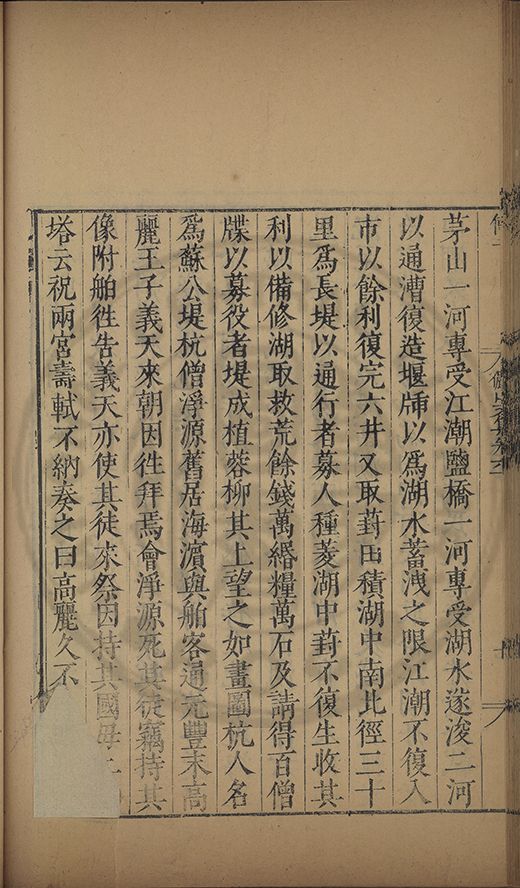 茅山一河專受江潮鹽橋一河專受湖水遂浚二河
以通漕復造堰牐以爲湖水蓄洩之限江潮不復入
市以餘利復完六井又取葑田積湖中南北徑三十
里爲長堤以通行者募人種菱湖中葑不復生收其
利以備修湖取救荒餘錢萬緡糧萬石及請得百僧
牒以募役者堤成植蓉柳其上望之如畫圖杭人名
爲蘇公堤杭僧淨源舊居海濵與舶客通元豐末高
麗王子義天來朝因徃拜焉會淨源死其徒竊持其
像附舶徃告義天亦使其徒來祭因持其國母二
塔云祝兩宮壽軾不納奏之曰高麗久不